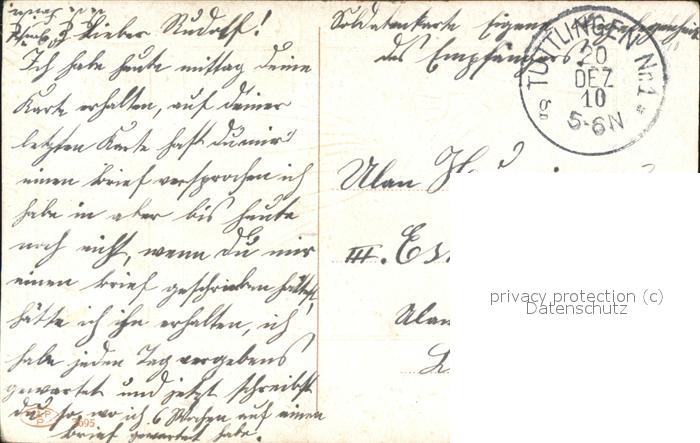 Lieber Rudolf!
Ich habe heute mittag deine
Karte erhalten, auf deiner
letzten Karte hast du mir
einen Brief versprochen ich
habe in aber bis heute
noch nicht, wenn du mir
einen Brief geschrieben hättest
hätte ich ihn erhalten, ich
habe jeden Tag vergebens
gewartet und jetzt schreibst
du so, wo ich 6 Wochen auf einen
Brief gewartet habe.
Soldatenkarte Eigene Angelegenheit
des Empfängers
TUTTLINGEN Nr.1
20
DEZ
10
5-6N
Ulan
III. Es
Ulan
privacy protection (c)
Datenschutz